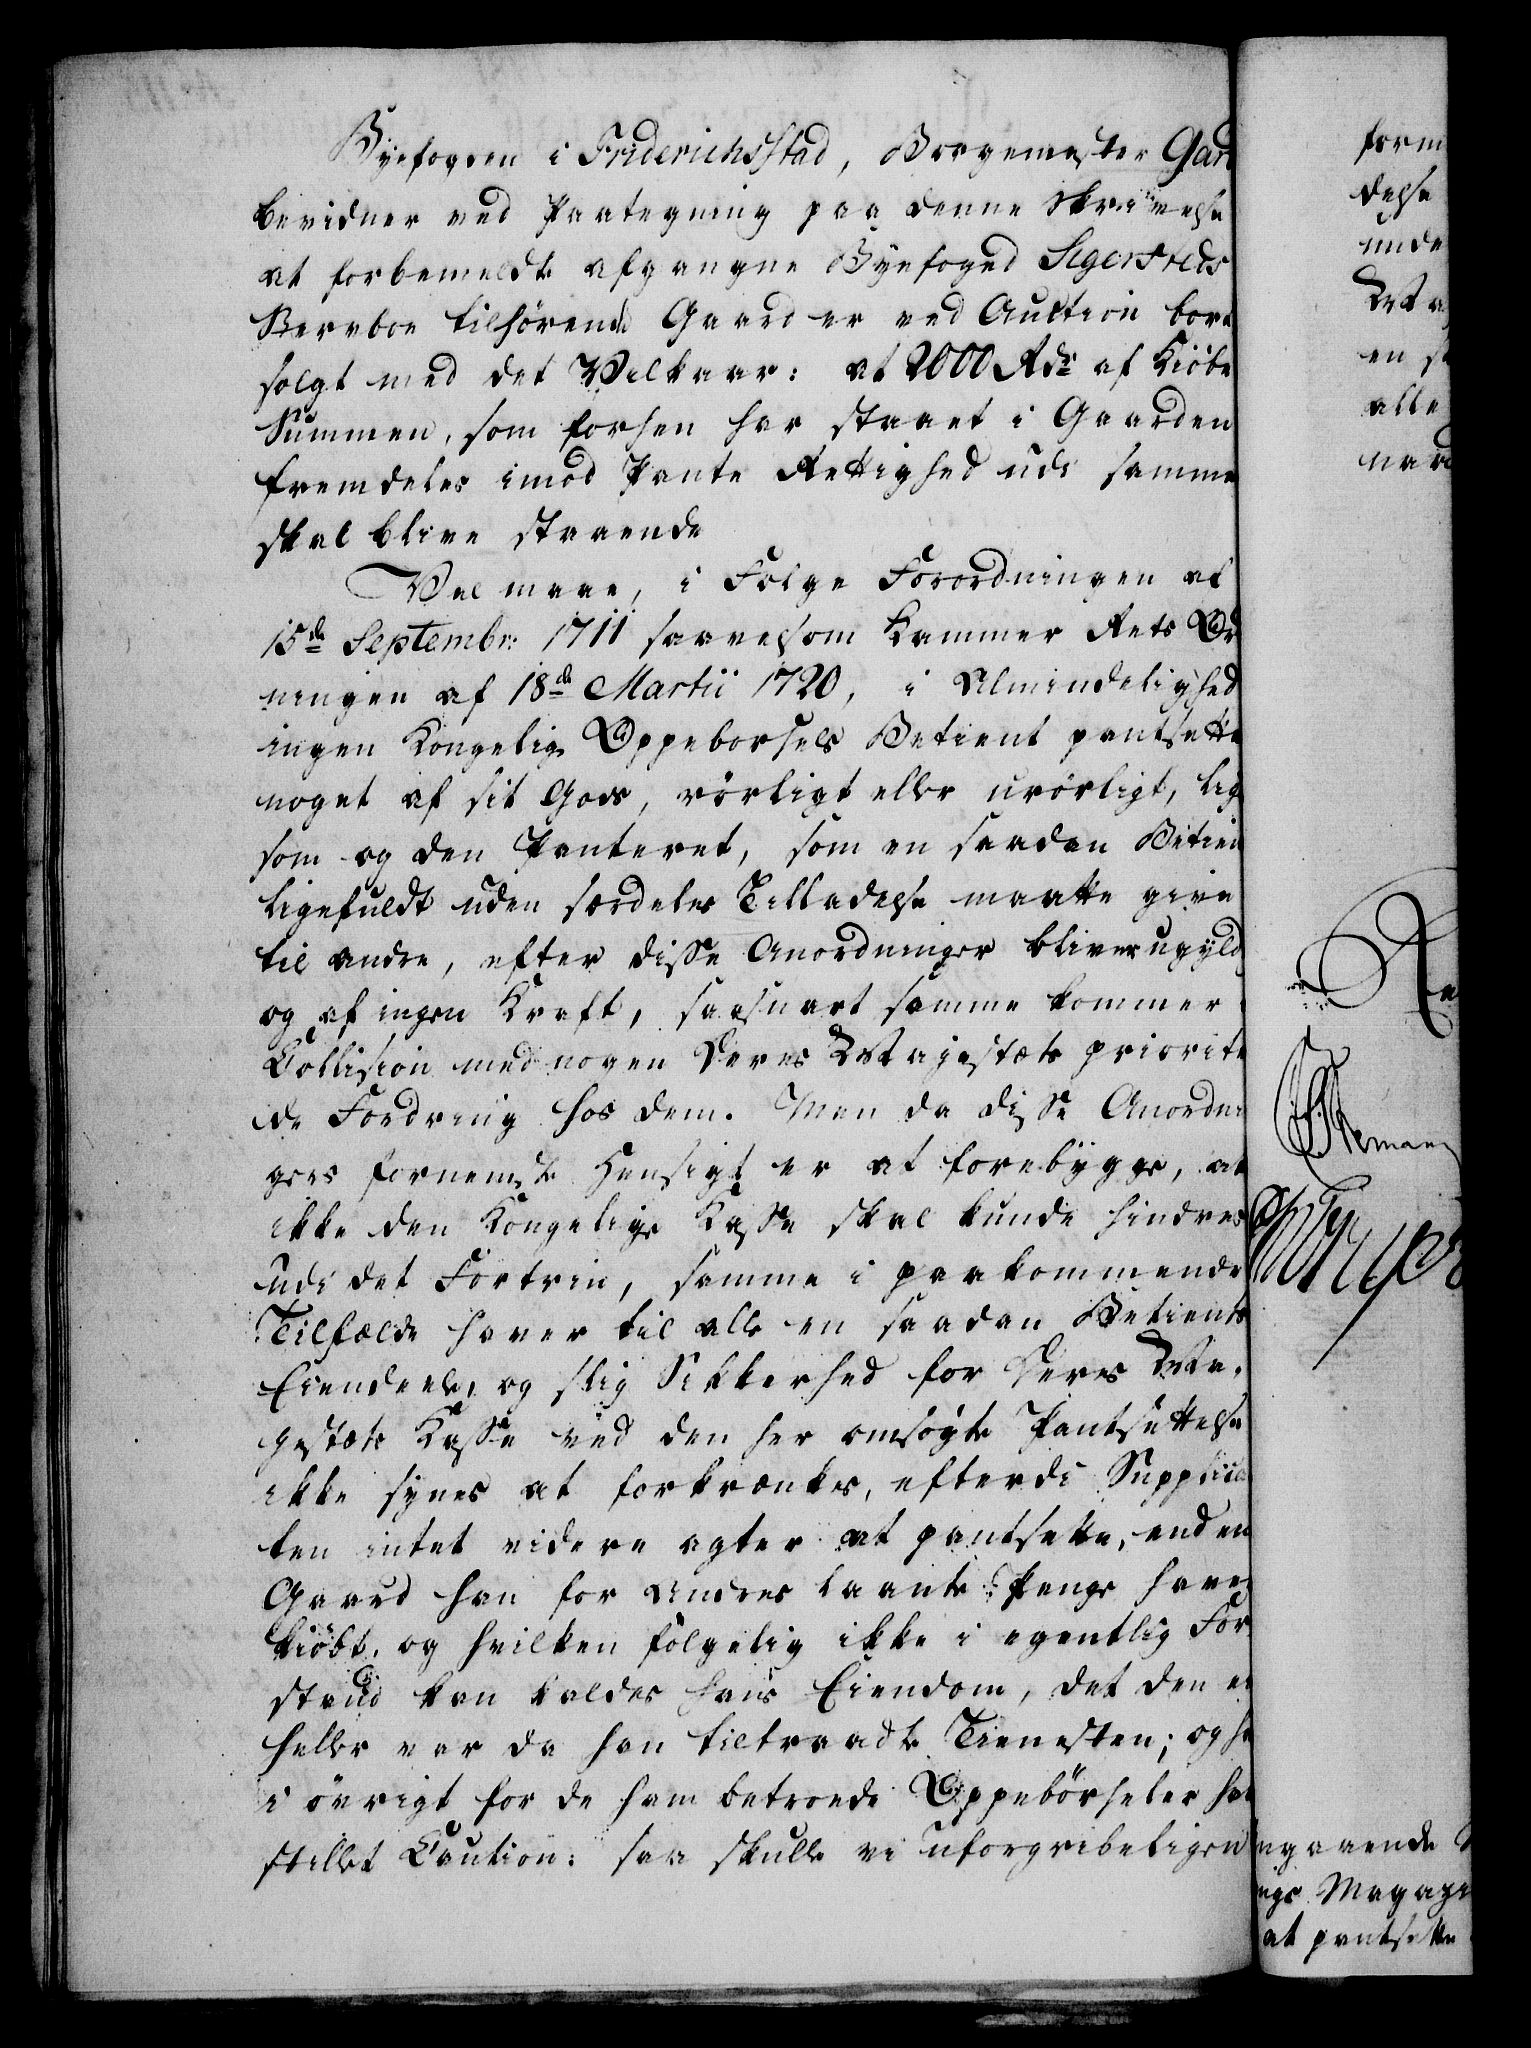 Byefogden i Friderichsstad, Borgemester Gar
bevidner ved Paategning paa denne Skrivelse
at forbemeldte afgangne Byefoged Segersteds
Sterboe tilhörende Gaard er ved Auction bort
solgt med det Vilkaar: at 2000 Rdr af Kiöbe
Summen, som forhen har staaet i Gaarden
fremdeles imod Pante Rettighed udi samme
skal blive staaende
Vel maae, i Fölge Forordningen af
15de Septembr: 1711 saavelsom Kammer Rets Or
ningen af 18de Martii 1720, i Almindelighed
ingen Kongelig Oppeborsels Betient pantsette
noget af sit Gods, rörligt eller urörligt, lig
som og den Panteret, som en saadan Betien
ligefuldt uden særdeles Tilladelse maatte give
til andre, efter disse Anordninger bliver ugyld
og af ingen Kraft, saasnart samme kommer
Collision med nogen Deres Majestæts priorite
de Fordring hos dem. Men da disse Anordni
gers fornemste Hensigt er at forebygge, at
ikke den Kongelige Kasse skal kunde hindres
udi det Fortrin, samme i paakommende
Tilfælde haver til alle en saadan Betients
Eiendeele, og slig Sikkerhed for Deres Ma-
jestæts Kasse ved den her omsögte Pantsættelse
ikke synes at forkrænkes, efterdi Supplica
ten intet videre agter at pantsette, end en
Gaard han for andres laante Penge haver
kiöbt, og hvilken fölgelig ikke i egentlig For-
stand kan kaldes hans Eiendom, det den ei
heller var da han tiltraadte Tienesten; og ha
i övrigt for de ham betroede Oppebörseler har
stillet Caution: saa skulle vi uforgribeligen
form
delse
unde
Ma
en s
alle
nar
Re
ngaaende
ngs Magazi
at pantsette